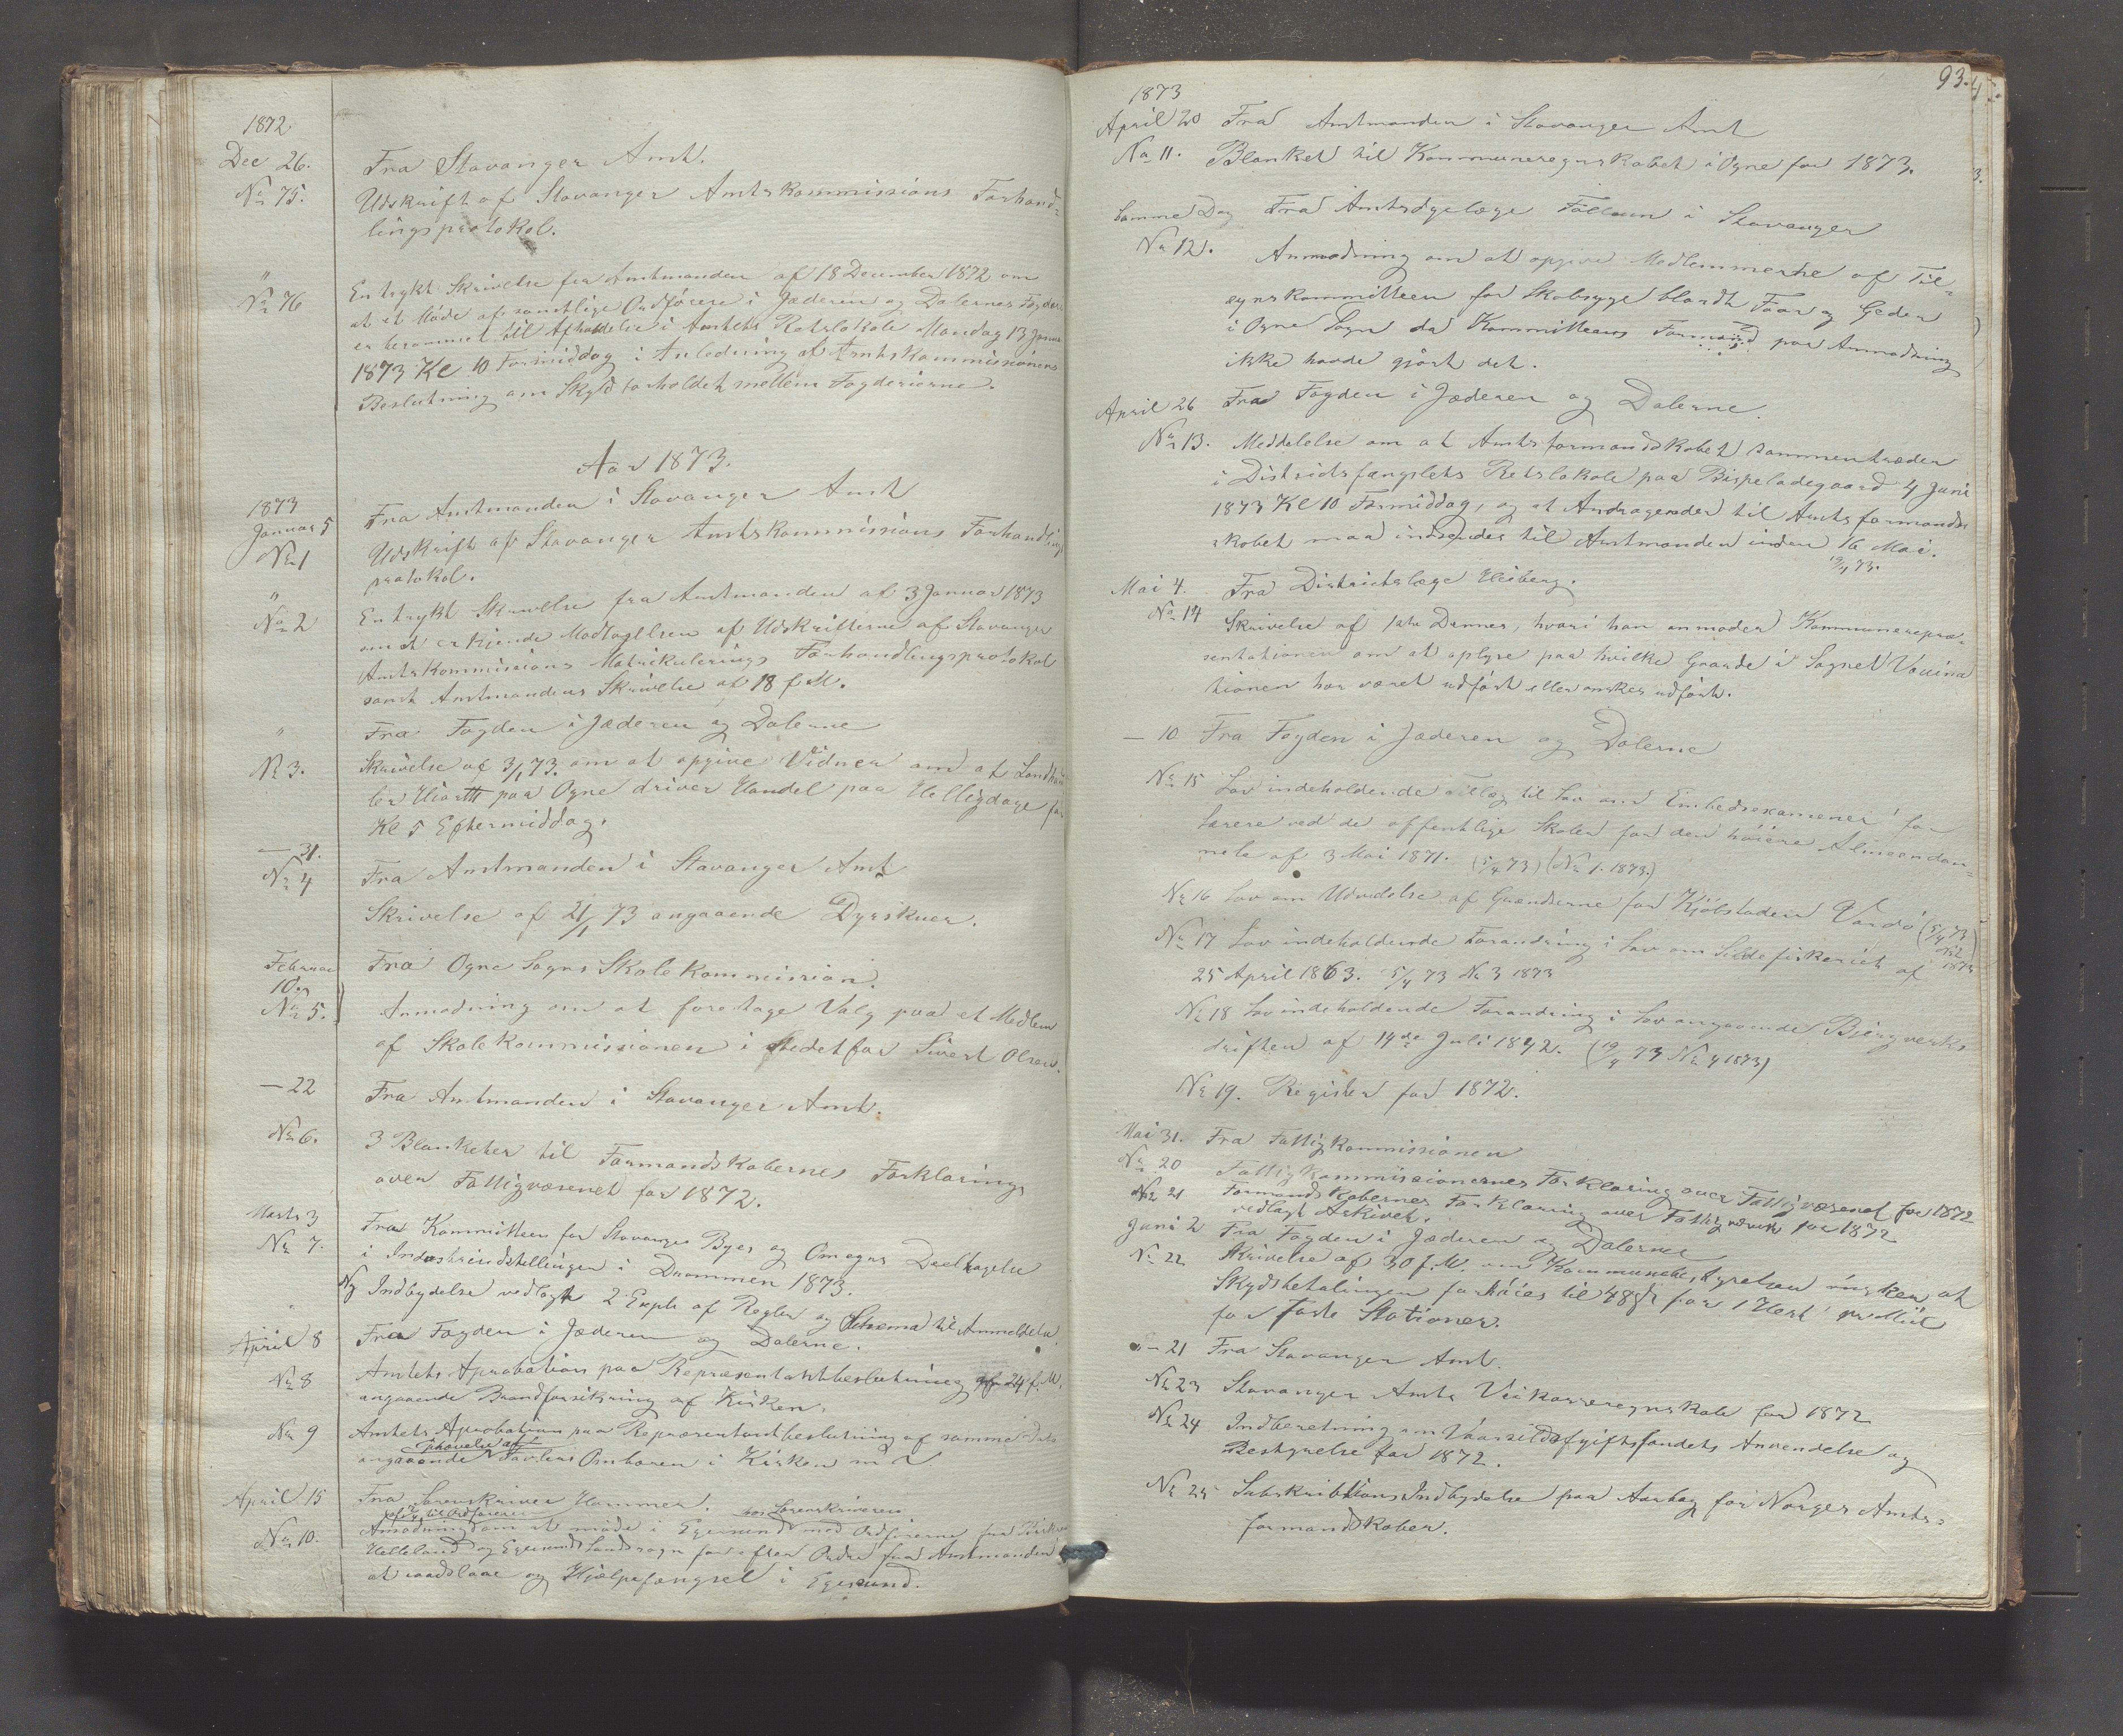 1872
Dec 26. Fra Stavanger Amt.
No 75. Udskrift af Stavanger Amtskommissions Forhand-
lingsprotokol.
" En trykt Skrivelse fra Amtmanden af 18 December 1872 om
No 76 at et Møde af samtlige Ordførere i Jæderen og Dalernes Fogderi
er berammet til Afholdelse i Amtets Retslokale Mandag 13 Januar
1873 Kl 10 Formiddag i Anledning af Amtskommissionens
Beslutning om Skyldforholdet mellem Fogderierne.
Aar 1873.
1873
Januar 5 Fra Amtmanden i Stavanger Amt
No 1 Udskrift af Stavanger Amtskommissions Forhandlings
protokol.
" En trykt Skrivelse fra Amtmanden af 3 Januar 1873
No 2 om at erkjende Modtagelsen af Udskrifterne af Stavanger
Amtskommissions Matrikulerings Forhandlingsprotokol
samt Amtmandens Skrivelse af 18 f. M.
" Fra Fogden i Jæderen og Dalerne
No 3. Skrivelse af 3/1 73. om at opgive Vidner om at Landhan
ler Hiorth paa Ogne driver Handel paa Helligdage før
Kl 5 Eftermiddag.
— 31.
No 4 Fra Amtmanden i Stavanger Amt
Skrivelse af 21/1 73 angaaende Dyrskuer.
Februar Fra Ogne Sogns Skolekommission.
10.
No 5. Anmodning om at foretage Valg paa et Medlem
af Skolekommissionen i Stedet for Sivert Olsen.
— 22 Fra Amtmanden i Stavanger Amt.
No 6. 3 Blanketer til Formandskabernes Forklarings
over Fattigvæsenet for 1872.
Marts 3 Fra Kommitteen for Stavanger Byes og Omegns Deeltagelse
No 7. i Industriudstillingen i Drammen 1873.
Indbydelse vedlagt 2 Expl. af Regler og Schema til Anmeldelse.
April 8 Fra Fogden i Jæderen og Dalerne.
No 8 Amtets Aprobation paa Repræsentantbeslutning af 24 f. M.
angaaende Brandforsikring af Kirken.
No 9 Amtets Aprobation paa Repræsentantbeslutning af samme Dato
ophævelse af
angaaende Ombaren i Kirken m. V.
April 15 Fra Sorenskriver Hammer.
til Ordføreren hos Sorenskriveren
No 10. Amodning om at møde i Egersund med Ordførerne for
Helleland og Egersunds Landsogn for efter Ordre fra Amtmanden
at raadslaae og Hjælpefængsel i Egersund.
93.
1873
April 20 Fra Amtmanden i Stavanger Amt
No 11. Blanket til Kommuneregnskabet i Ogne for 1873.
Samme Dag Fra Amtsdyrlæge Føllum i Stavanger
No 12. Anmodning om at opgive Medlemmerne af Til-
synskommitteen for Skabsyge blandt Faar og Geder
i Ogne Sogn da Kommitteens Formand paa Anmodning
ikke havde gjort det.
April 26 Fra Fogden i Jæderen og Dalerne.
No 13. Meddelelse om at Amtsformandskabet sammentræder
i Distriktsfængslets Retslokale paa Bispeladegaard 4 Juni
1873 Kl 10 Formiddag, og at Andragender til Amtsformands
skabet maa indsendes til Amtmanden inden 16 Mai.
19/4 73.
Mai 4. Fra Districtslæge Heiberg.
No 14 Skrivelse af 1ste Dennes, hvori han anmoder Kommunerepræ-
sentationen om at oplyse paa hvilke Gaarde i Sognet Vaccina
tionen har været udført eller ønskes udført.
— 10 Fra Fogden i Jæderen og Dalerne
No 15 Lov indeholdende Tillæg til Lov om Embedsexamener for
Lærere ved de offentlige Skoler for den høiere Almeendan-
nelse af 3 Mai 1871. (5/4 73) (No 1. 1873.)
No 16 Lov om Udvidelse af Grændserne for Kjøbstaden Vardø (5/4 73
No 2 1873)
No 17 Lov indeholdende Forandring i Lov om Sildefiskeriet af
25 April 1863. 5/4 73 No 3 1873
No 18 Lov indeholdende Forandring i Lov angaaende Bjergverks
driften af 14de Juli 1842. (19/4 73 No 4 1873)
No 19. Register for 1872.
Mai 31. Fra Fattigkommissionen
No 20 Fattigkommissionernes Forklaring over Fattigvæsenet for 1872
No 21 Formandskabernes Forklaring over Fattigvæsenet for 1872
vedlagt Arkivet.
Juni 2 Fra Fogden i Jæderen og Dalerne
No 22 Skrivelse af 30 f. M. om Kommunebestyrelsen ønsker at
Skydsbetalingen forhøies til 48 ß for 1 Hest pr Miil
for faste Stationer.
— 21 Fra Stavanger Amt.
No 23 Stavanger Amts Veikasseregnskab for 1872
No 24 Indberetning om Vaarsildafgiftsfondets Anvendelse og
Bestyrelse for 1872.
No 25 Subskribtions Indbydelse paa Aarbog for Norges Amts-
formandskaber.